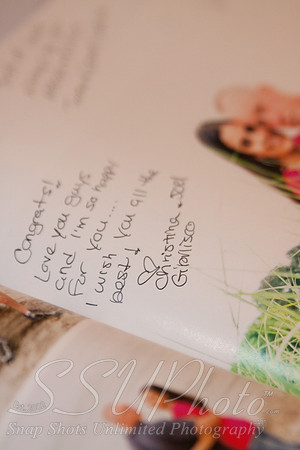 Congrats!
Love you guys
and I'm so happy
for you....
I wish you all the
best!
Christina & Joel
Gibilisco
SSUPhoto™
.com
Snap Shots Unlimited Photography